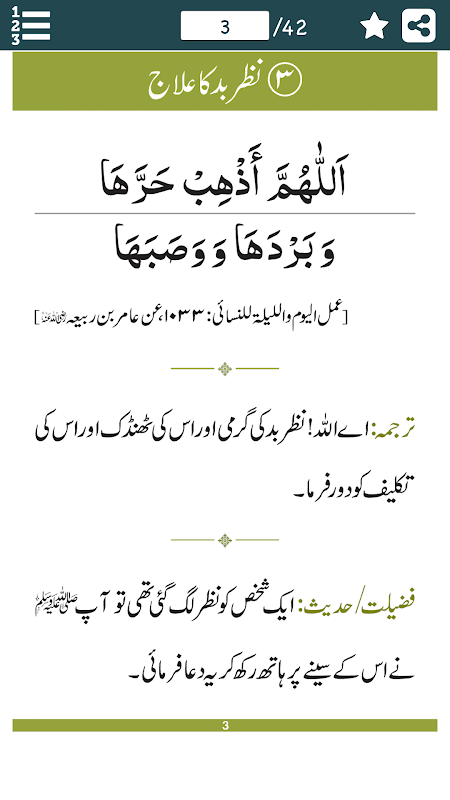 1
2
3
3 /42
۳ نظر بد کا علاج
اَللّٰهُمَّ أَذْهِبْ حَرَّهَا
وَبَرْدَهَا وَوَصَبَهَا
[عمل الیوم واللیلة للنسائی: ۱۰۳۳، عن عامر بن ربیعہ رضی اللہ عنہ]
ترجمہ: اے اللہ! نظر بد کی گرمی اور اس کی ٹھنڈک اور اس کی
تکلیف کو دور فرما۔
فضیلت/حدیث: ایک شخص کو نظر لگ گئی تھی تو آپ ﷺ
نے اس کے سینے پر ہاتھ رکھ کر یہ دعا فرمائی۔
3